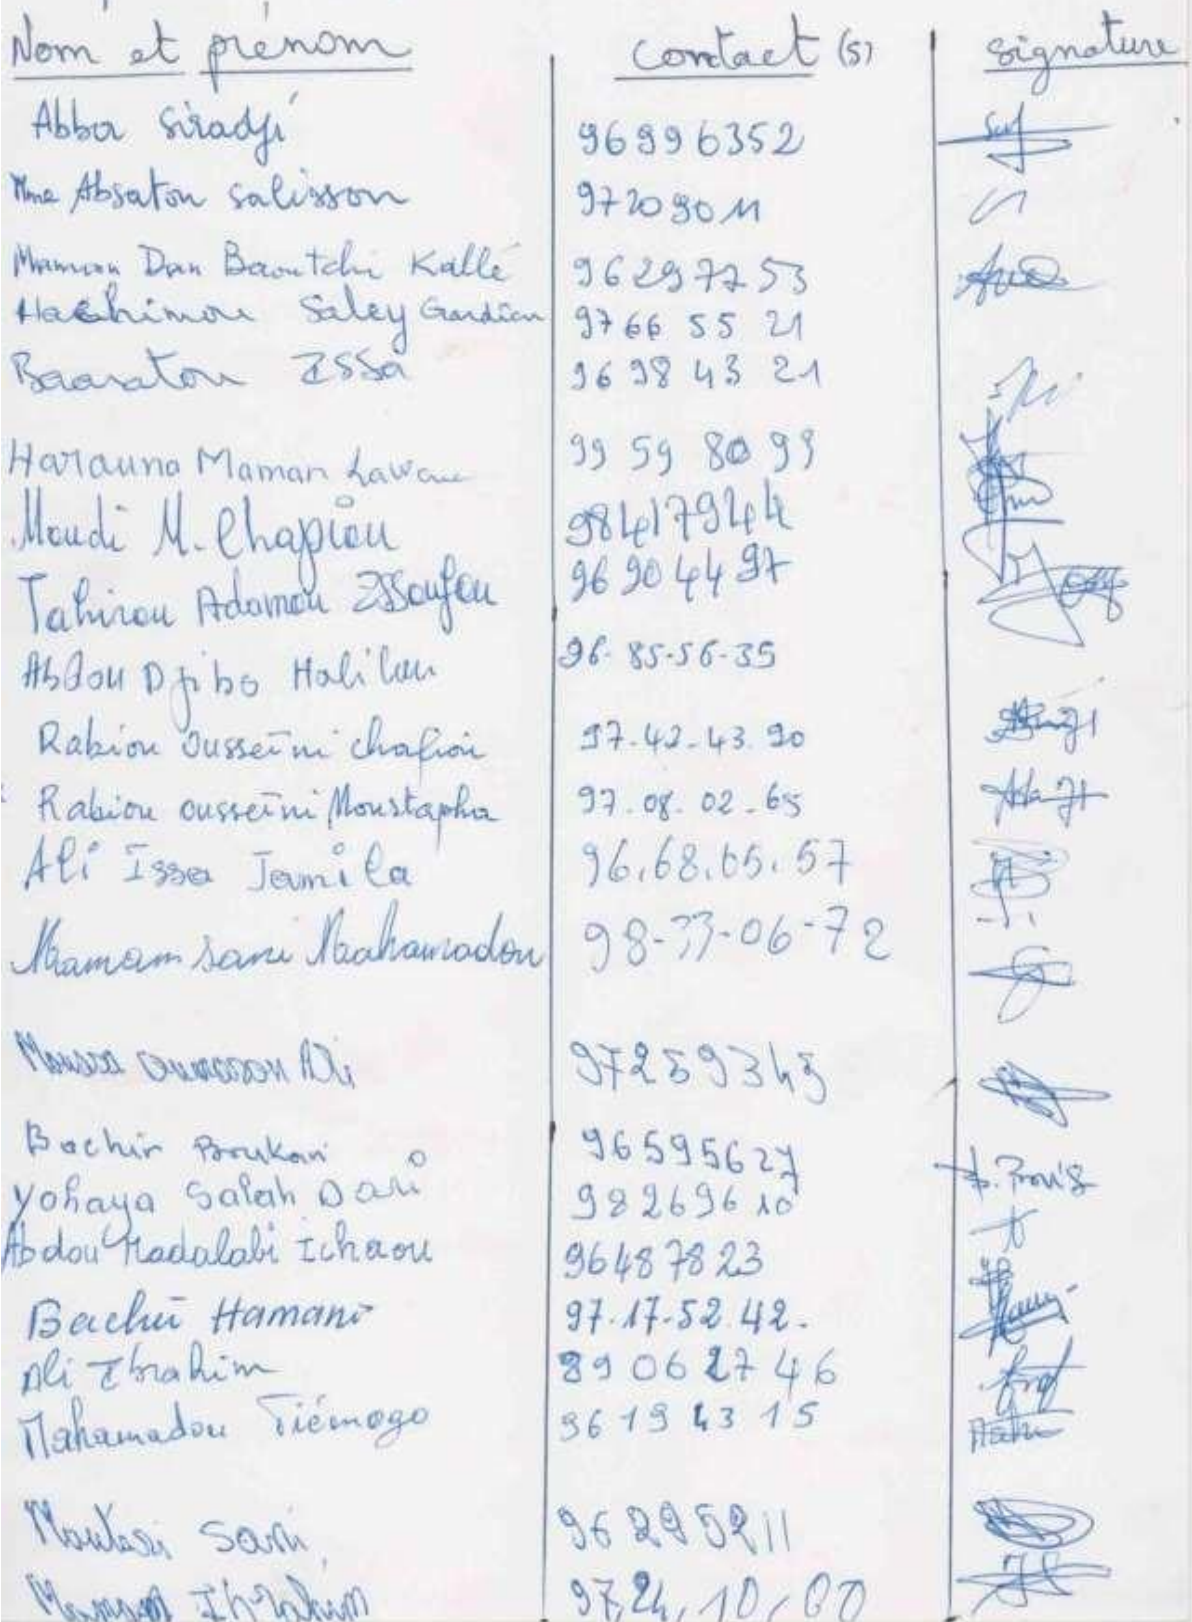 Nom et prénom contact (s) signature
Abba Siradji 96996352
Mme Absatou Salissou 97209011
Maman Dan Baoutchi Kallé 96297753
Hachimou Saley Gardien 97 66 55 21
Baaratou Issa 96 98 43 21
Harouna Maman Lawan 99 59 80 99
Moudi M. Chapiou 98417944
Tahirou Adamou Issoufou 96 90 44 97
Abdou Djibo Halilou 96-85-56-35
Rabiou Ousseïni chafiou 97.42.43.90
Rabiou ousseïni Moustapha 97.08.02.65
Ali Issa Jamila 96.68.65.57
Mamam Sani Maahamadou 98-33-06-72
Moussa Oumarou Ali 97259345
Bachir Boukari 96595627
Yohaya Salah Dari 98269610
Abdou Madalabi Ichaou 96487823
Bachir Hamani 97.17.52.42.
Ali Ibrahim 89 06 27 46
Mahamadou Tiémogo 96 19 43 15
Moutari Sani 96295211
Maman Ibrahim 97,24,10,00